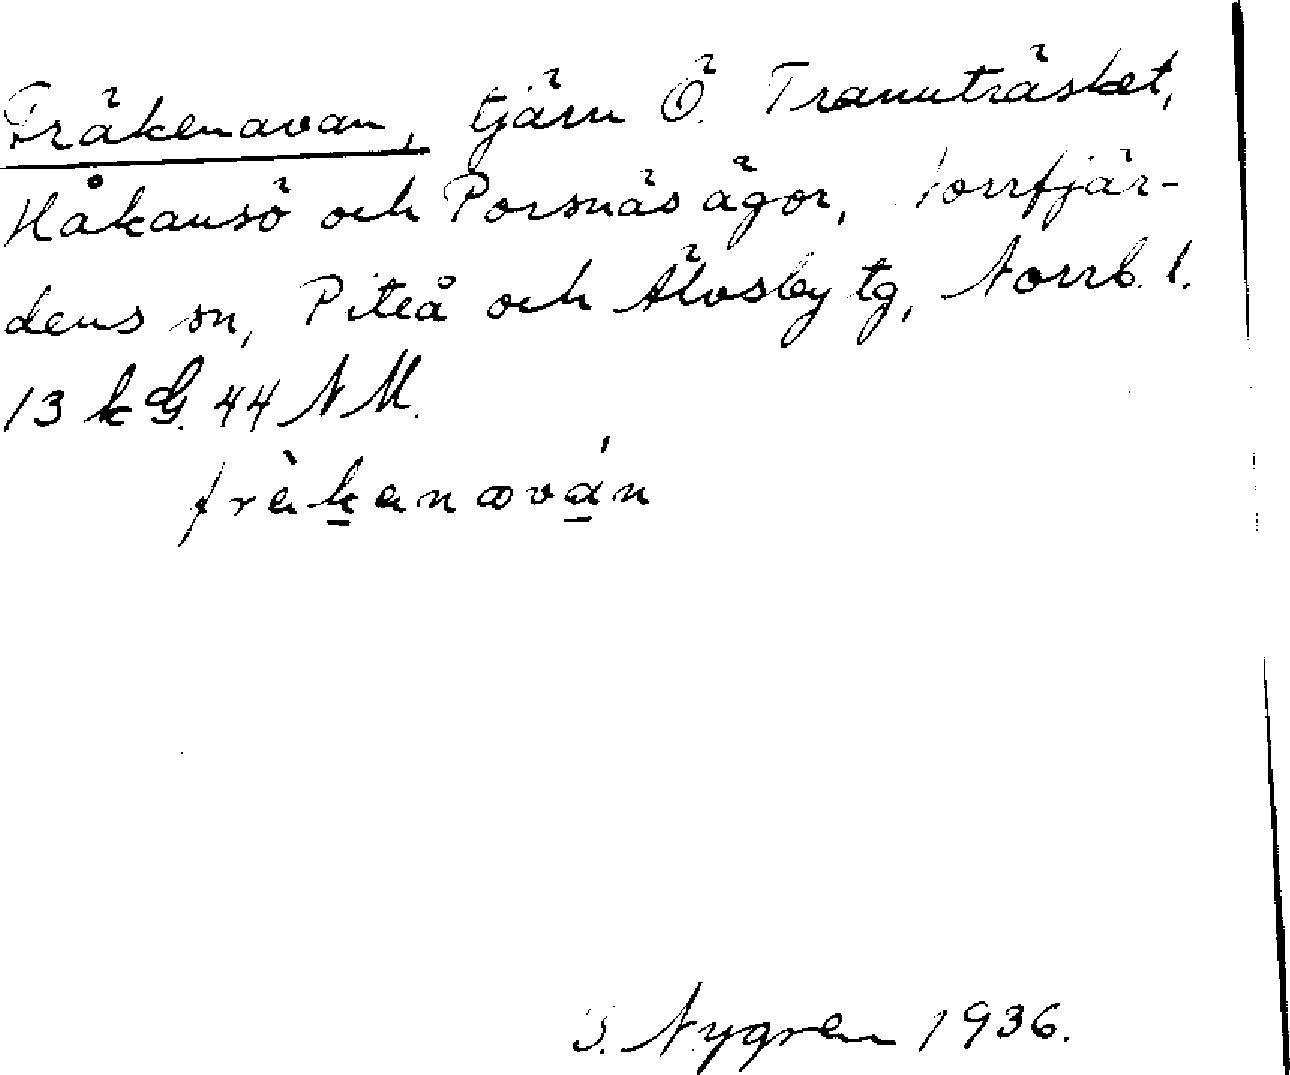 Fräkenavan, tjärn Ö. Tranuträsket,
Håkansö och Porsnäs ägor, Norrfjär-
dens sn, Piteå och Älvsby tg, Norrb. l.
13 k G. 44 N M.
frèkenaván
Nygren 1936.